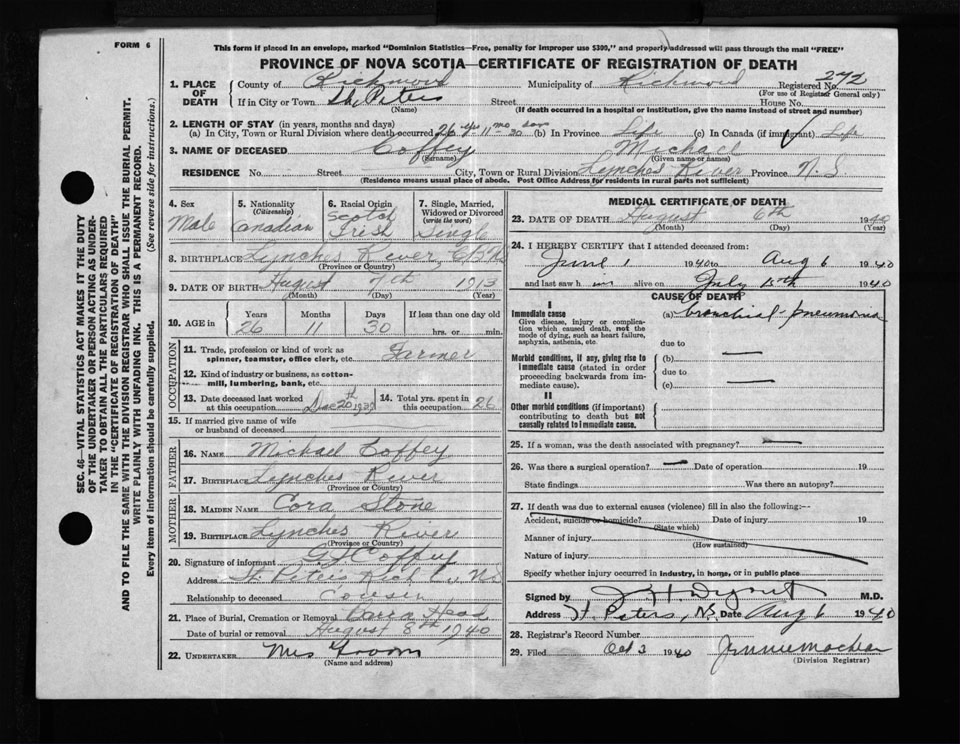 FORM 6
This form if placed in an envelope, marked "Dominion Statistics—Free, penalty for improper use $300," and properly addressed will pass through the mail "FREE"
PROVINCE OF NOVA SCOTIA—CERTIFICATE OF REGISTRATION OF DEATH
1. PLACE OF DEATH
County of Richmond Municipality of Richmond Registered No. 272
(For use of Registrar General only)
If in City or Town St. Peters Street House No.
(Name) (If death occurred in a hospital or institution, give the name instead of street and number)
2. LENGTH OF STAY (in years, months and days)
(a) In City, Town or Rural Division where death occurred 26 yrs-11 mo-30 days (b) In Province Life (c) In Canada (if immigrant) Life
3. NAME OF DECEASED Coffey Michael
(Surname) (Given name or names)
RESIDENCE No. Street City, Town or Rural Division Lynches River Province N. S.
(Residence means usual place of abode. Post Office Address for residents in rural parts not sufficient)
4. Sex Male
5. Nationality (Citizenship) Canadian
6. Racial Origin Scotch Irish
7. Single, Married, Widowed or Divorced (write the word) Single
8. BIRTHPLACE Lynches River, C.B.
(Province or Country)
9. DATE OF BIRTH August 7th 1913
(Month) (Day) (Year)
10. AGE in Years 26 Months 11 Days 30 If less than one day old hrs. or min.
OCCUPATION
11. Trade, profession or kind of work as spinner, teamster, office clerk, etc. Farmer
12. Kind of industry or business, as cotton-mill, lumbering, bank, etc.
13. Date deceased last worked at this occupation Dec 20th 1939
14. Total yrs. spent in this occupation 26
15. If married give name of wife or husband of deceased
FATHER
16. NAME Michael Coffey
17. BIRTHPLACE Lynches River
(Province or Country)
MOTHER
18. MAIDEN NAME Cora Stone
19. BIRTHPLACE Lynches River
(Province or Country)
20. Signature of informant Coffey
Address St. Peters Rich Co N.S.
Relationship to deceased Cousin
21. Place of Burial, Cremation or Removal Barra Head
Date of burial or removal August 8th 1940
22. UNDERTAKER Mrs
(Name and address)
MEDICAL CERTIFICATE OF DEATH
23. DATE OF DEATH August 6th 1940
(Month) (Day) (Year)
24. I HEREBY CERTIFY that I attended deceased from:
June 1 1940 to Aug 6 1940
and last saw h im alive on July 15th 1940
CAUSE OF DEATH
I
Immediate cause
Give disease, injury or complication which caused death, not the mode of dying, such as heart failure, asphyxia, asthenia, etc.
(a) bronchial-pneumonia
due to
Morbid conditions, if any, giving rise to immediate cause (stated in order proceeding backwards from immediate cause)
(b)
due to
(c)
II
Other morbid conditions (if important) contributing to death but not causally related to immediate cause.
25. If a woman, was the death associated with pregnancy?
26. Was there a surgical operation? Date of operation 19
State findings Was there an autopsy?
27. If death was due to external causes (violence) fill in also the following:—
Accident, suicide or homicide? Date of injury 19
(State which)
Manner of injury
(How sustained)
Nature of injury
Specify whether injury occurred in industry, in home, or in public place
Signed by M.D.
Address St. Peters, N.S. Date Aug 6 1940
28. Registrar's Record Number
29. Filed Oct 2 1940
(Division Registrar)
SEC. 46—VITAL STATISTICS ACT MAKES IT THE DUTY
OF THE UNDERTAKER OR PERSON ACTING AS UNDER-
TAKER TO OBTAIN ALL THE PARTICULARS REQUIRED
IN THE "CERTIFICATE OF REGISTRATION OF DEATH"
AND TO FILE THE SAME WITH THE DIVISION REGISTRAR WHO SHALL ISSUE THE BURIAL PERMIT.
WRITE PLAINLY WITH UNFADING INK. THIS IS A PERMANENT RECORD.
Every item of information should be carefully supplied. (See reverse side for instructions.)